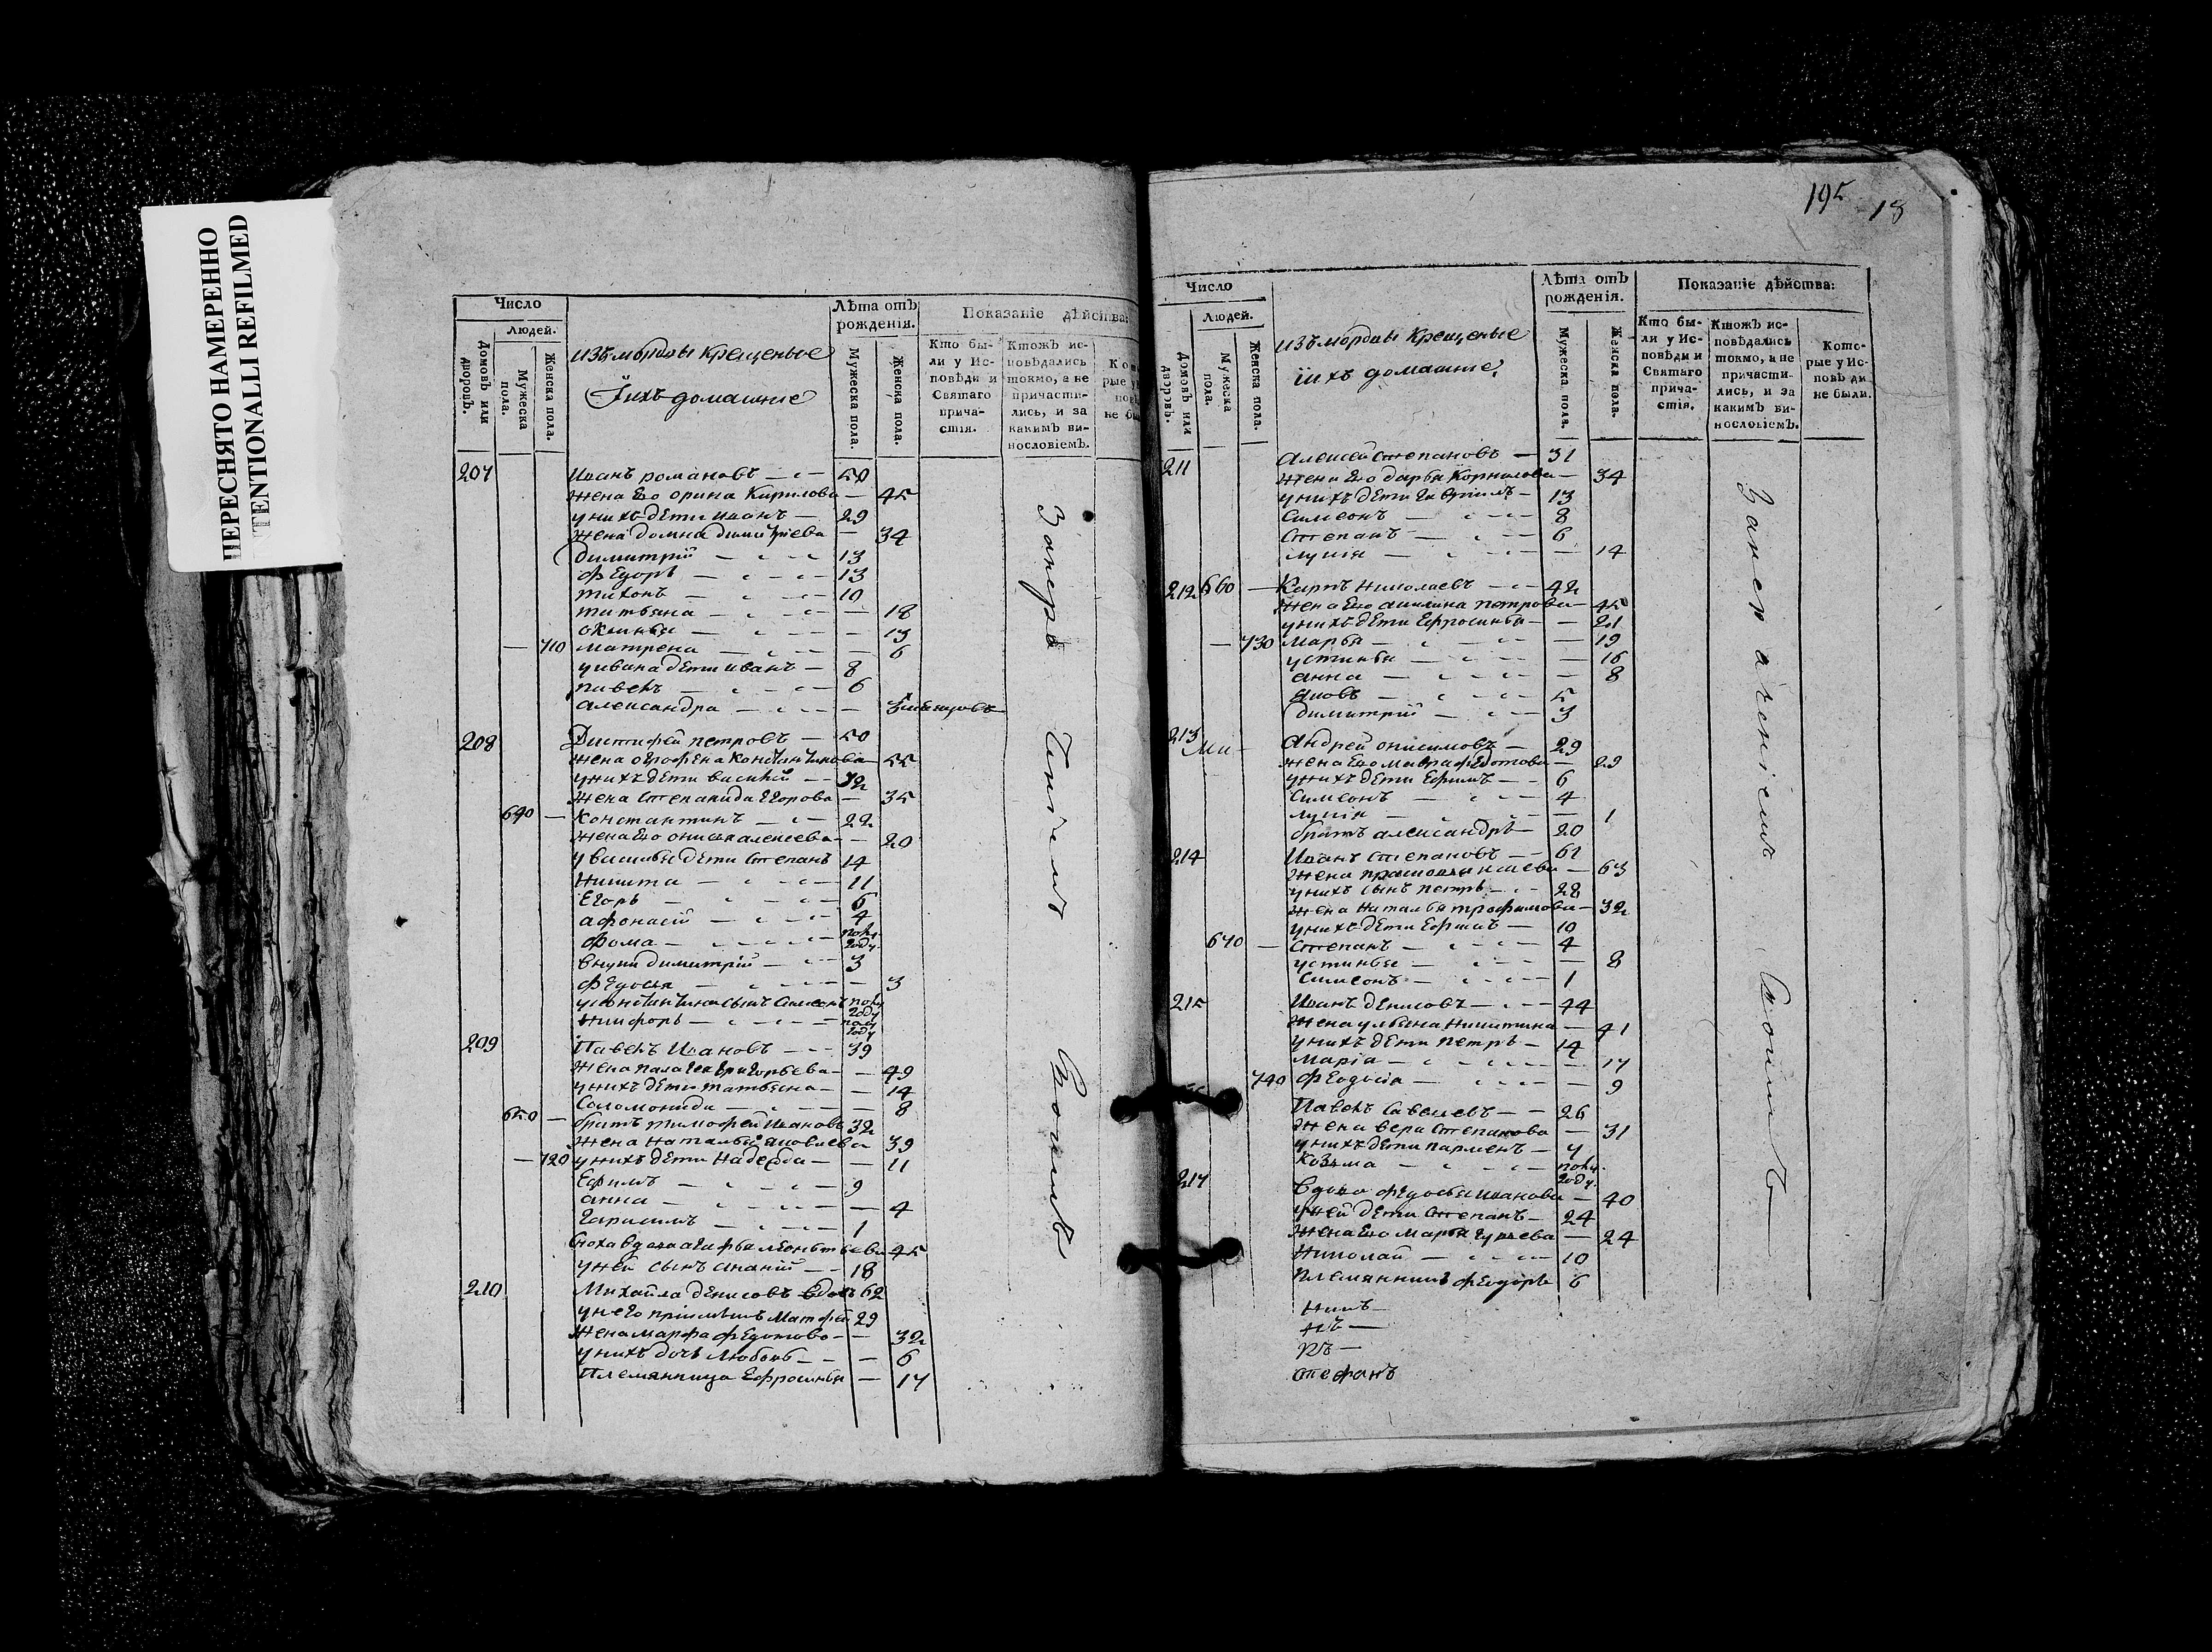 ПЕРЕСНЯТО НАМЕРЕННО
TENTIONALLI REFILMED
Число
Людей.
Домовъ или дворовъ.
Мужеска пола.
Женска пола.
изъ мордвы крещеные
и ихъ домашние
Лѣта отъ рожденія.
Мужеска пола.
Женска пола.
Показаніе дѣйства:
Кто бы-
ли у Ис-
повѣди и
Святаго
прича-
стія.
Ктожъ ис-
повѣдались
токмо, а не
причасти-
лись, и за
какимъ ви-
нословіемъ.
207 Иванъ романовъ — 50
жена его орина Кирилова — 45
у нихъ дети иванъ — 29
жена домна димитриева — 34
Димитрий — 13
Федоръ — 13
тихонъ — 10
татьяна — 18
оксинья — 13
— 710 матрена — 6
у ивана дети иванъ — 8
павелъ — 6
александра —
208 петровъ — 50
жена огрофена константинова — 55
у нихъ дети василий — 32
жена степанида Егорова — 35
640 — константинъ — 22
жена его алексеева — 20
у василья дети степанъ 14
никита — 11
Егоръ — 6
афонасий — 4
фома — полу году
внуки димитрий — 3
федосья — 3
у константина сынъ Симеонъ полу году
никифоръ — полу году
209 Павелъ Ивановъ — 39
жена григорьева — 49
у нихъ дети татьяна — 14
Соломонида — 8
650 — братъ тимофей Ивановъ 32
жена наталья яковлева 39
— 720 у нихъ дети надежда — 11
Ефимъ — 9
анна — 4
Гарасимъ — 1
сноха вдова агафья леонтьева 45
у ней сынъ ананий — 18
210 Михайла денисовъ вдовъ 62
у него приимышъ Матфей 29
жена марфа федотова — 32
у нихъ дочь любовь — 6
Племянница Ефросинья — 17
За нерачениемъ своимъ
195
18
Число
Людей.
Домовъ или дворовъ.
Мужеска пола.
Женска пола.
изъ мордвы крещеные
и ихъ домашние
Лѣта отъ рожденія.
Мужеска пола.
Женска пола.
Показаніе дѣйства:
Кто бы-
ли у Ис-
повѣди и
Святаго
прича-
стія.
Ктожъ ис-
повѣдались
токмо, а не
причасти-
лись, и за
какимъ ви-
нословіемъ.
Кото-
рые у Ис-
повѣди
не были.
211 Алексей Степановъ — 31
жена его дарья Корнилова — 34
у нихъ дети Гавриилъ — 13
Симеонъ — 8
Степанъ — 6
лукия — 14
212 660 — Карпъ Николаевъ — 42
жена его акилина петрова — 45
у нихъ дети Ефросинья — 21
— 730 марья — 19
устинья — 16
анна — 8
яковъ — 5
димитрий — 3
213 Андрей онисимовъ — 29
жена его мавра федотова — 29
у нихъ дети Ефимъ — 6
Симеонъ — 4
лукия — 1
братъ александръ — 20
214 Иванъ степановъ — 61
жена — 63
у нихъ сынъ петръ — 28
жена наталья трофимова — 32
у нихъ дети Ефимъ — 10
670 — степанъ — 4
устинья — 8
Симеонъ — 1
215 Иванъ денисовъ — 44
жена ульяна никитина — 41
у нихъ дети петръ — 14
мария — 17
740 феодосия — 9
Павелъ Савелевъ — 26
жена вера Степанова — 31
у нихъ дети парменъ — 4
Козьма — полу году
217 вдова федосья иванова — 40
у ней дети степанъ — 24
жена его марья гурьева — 24
николай — 10
племянникъ феодоръ 6
За нерачениемъ своимъ
стефанъ